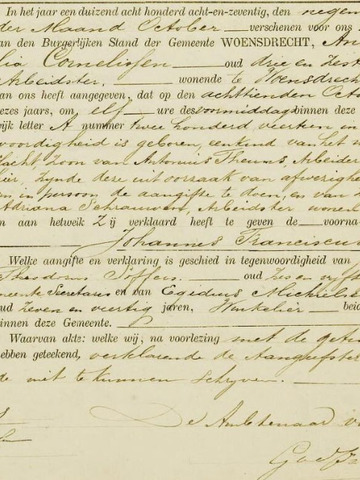 In het jaar een duizend acht honderd acht-en-zeventig, den negen
der Maand October verschenen voor ons
van den Burgerlijken Stand der Gemeente WOENSDRECHT,
lia Cornelissen oud drie en zest
Arbeidster, wonende te Woensdrecht
an ons heeft aangegeven, dat op den achttienden Octo
ezes jaars, om elf ure des voormiddags binnen deze
ijk letter A nummer twee honderd vier en
voordigheid is geboren, een kind van het
lacht zoon van Antonius Theuns, Arbeider
ier, zijnde deze uit oorzaak van afwezigheid
in persoon de aangifte te doen, en van
Adriana Schrauwen, Arbeidster, woon
en aan hetwelk Zij verklaard heeft te geven de voorna
Johannes Franciscu
Welke aangifte en verklaring is geschied in tegenwoordigheid van
Theodorus Soffers, oud zes en
meente Secretaris en van Egidius Michielse
ud zeven en veertig jaren, Winkelier beid
innen deze Gemeente.
Waarvan akte: welke wij, na voorlezing met de getui
ebben geteekend, verklarende de Aangeefster
de niet te kunnen schrijven.
De Ambtenaar v